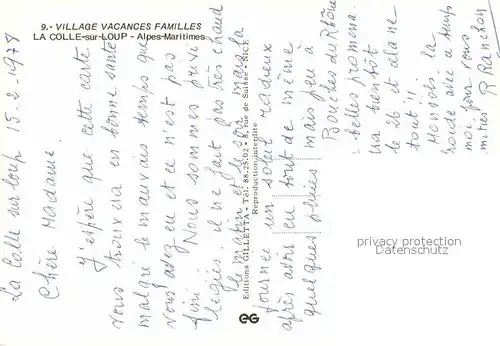 9.- VILLAGE VACANCES FAMILLES
LA COLLE-sur-LOUP - Alpes-Maritimes
La Colle sur loup 15-2-1978
Chère Madame.
J'espère que cette carte
vous trouvera en bonne santé
malgré le mauvais temps que
vous avez eu et ce n'est pas
fini. Nous sommes privi
légiés. il ne fait pas très chaud
le matin et le soir mais la
journée un soleil radieux
après avoir eu tout de même
quelques pluies mais peu à
Bouches du Rhône
belles promena
va bientôt
le 26 et
tout!!
la
temps
moi pour vous
amitiés
Editions GILLETTA - Tél. 88.25.02 - 8, rue de Suisse - NICE
Reproduction interdite
EG
privacy protection
Datenschutz